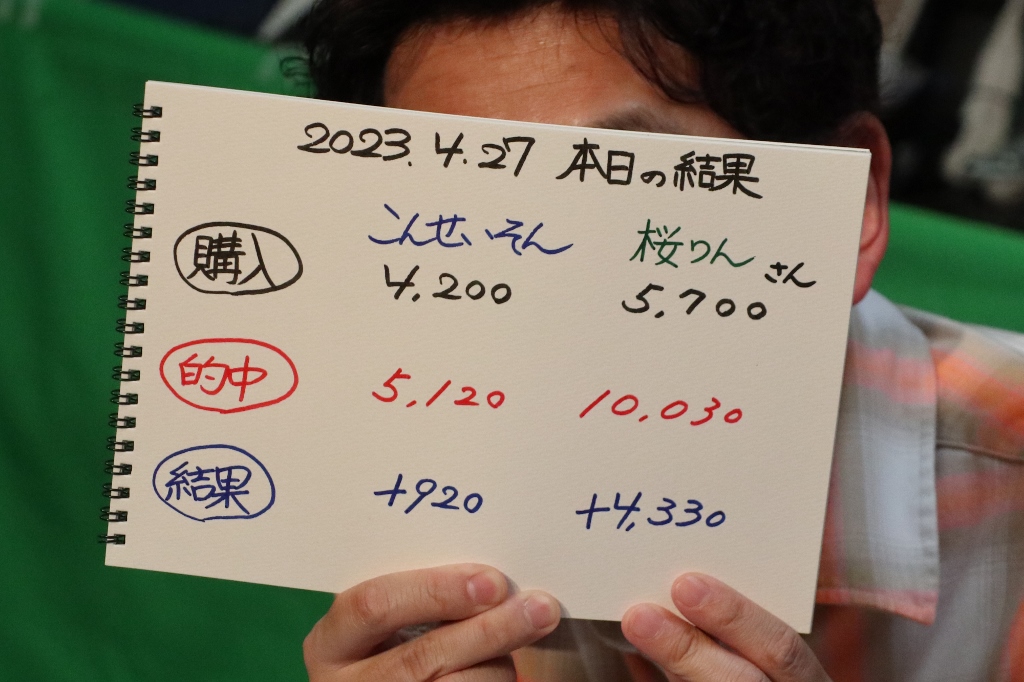 2023.4.27 本日の結果
こんせいそん 桜りんさん
購入 4,200 5,700
的中 5,120 10,030
結果 +920 +4,330